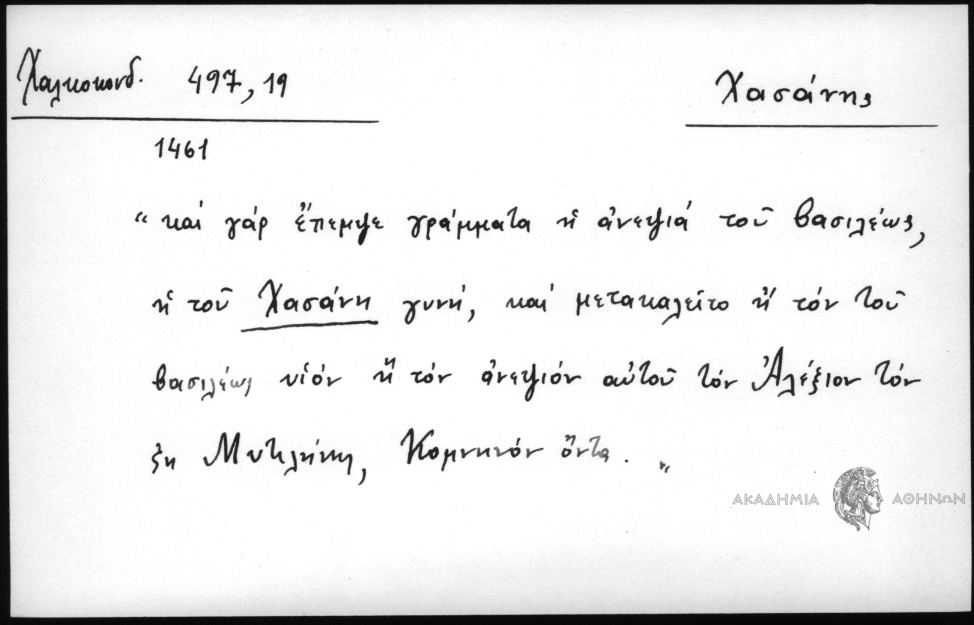 Χαλκοκονδ. 497, 19
Χασάνης
1461
“ καί γάρ ἔπεμψε γράμματα ἡ ἀνεψιά τοῦ βασιλέως,
ἡ τοῦ Χασάνη γυνή, καί μετακαλεῖτο ἤ τόν τοῦ
βασιλέως υἱόν ἤ τόν ἀνεψιόν αὐτοῦ τόν Ἀλέξιον τόν
ἐκ Μυτιλήνης, Κομνηνόν ὄντα. „
ΑΚΑΔΗΜΙΑ ΑΘΗΝΩΝ